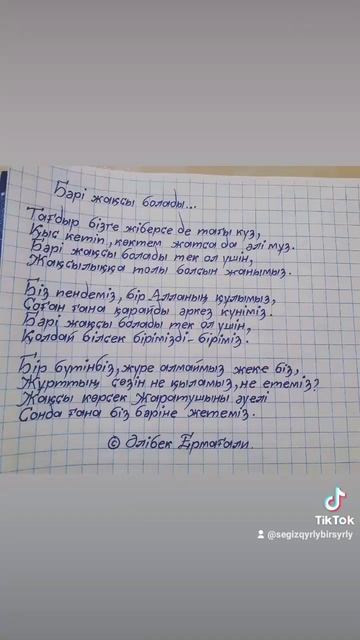 Бәрі жақсы болады...
Тағдыр бізге жіберсе де тағы күз,
Қыс кетіп, көктем жатса да әлі мұз.
Бәрі жақсы болады тек ол үшін,
Жақсылыққа толы болсын жанымыз.
Біз пендеміз, бір Алланың құлымыз,
Соған ғана қарайды әркез күніміз.
Бәрі жақсы болады тек ол үшін,
Қолдай білсек бірімізді-біріміз.
Бір бүтінбіз, жүре алмаймыз жеке біз,
Жұрттың сөзін не қыламыз, не етеміз?
Жақсы көрсек Жаратушыны әуелі
Сонда ғана біз бәріне жетеміз.
© Әлібек Ермағали.
TikTok
@segizqyrlybirsyrly